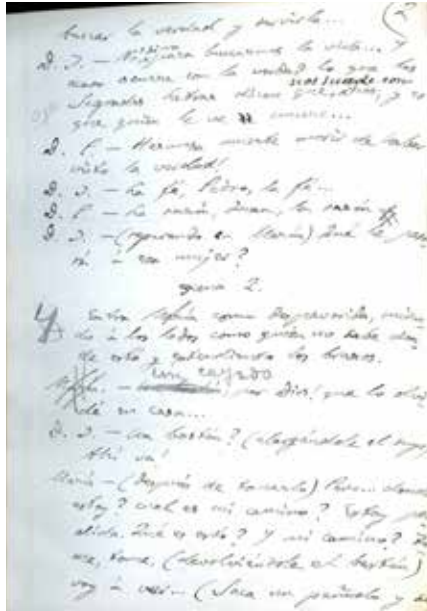 buscar la verdad y servirla... (2
D. J. – buscamos la vista... Y
acaso ocurra con la verdad lo que las
Sagradas Letras dicen que Dios, y es
que quien le ve se muere...
D. P. – Hermosa muerte morir de haber
visto la verdad!
D. J. – La fé, Pedro, la fé...
D. P. – La razón, Juan, la razón
D. J. – (reparando en María) Qué le pasa
rá á esa mujer?
escena 2.
Entra María como despavorida, miran
do á los lados como quien no sabe don
de está y extendiendo los brazos.
María. – un cayado por Dios! que lo olvi
dé en casa...
D. J. – Un bastón? (alargándole el suyo)
Ahí va!
María – (después de tomarlo) Pero... donde
estoy? cual es mi camino? Estoy per
dida. Qué es esto? Y mi camino? To
me, tome. (devolviéndole el bastón)
voy á ver... (Saca un pañuelo y